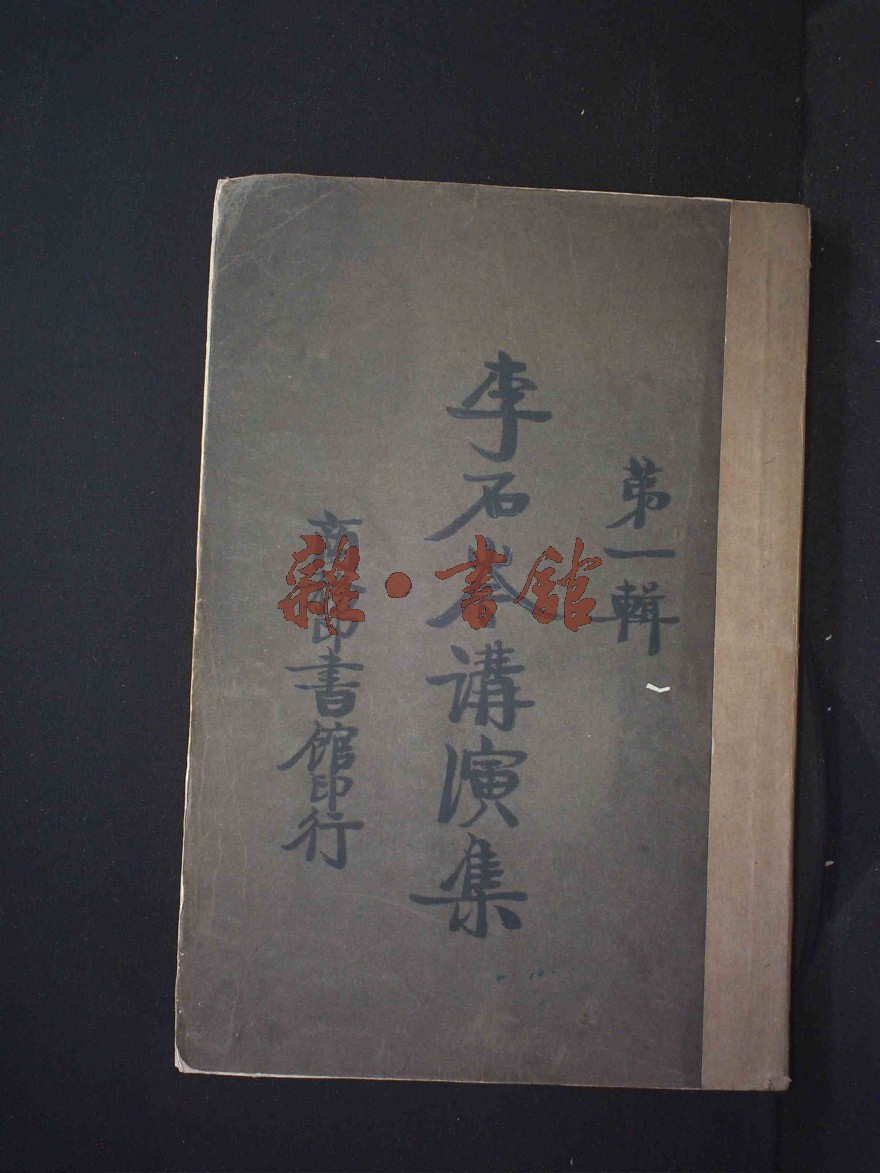 第一輯
李石岑講演集
商務印書館印行
雜·書館